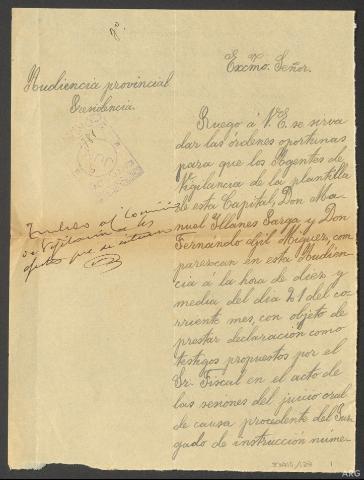 Audiencia provincial
Presidencia.
Excmo. Señor.
Ruego á V.E. se sirva
dar las órdenes oportunas
para que los Agentes de
Vigilancia de la plantilla
de esta Capital, Don Ma-
nuel Illanes Sarga y Don
Fernando Gil Miguez, com-
parezcan en esta Audien-
cia á la hora de diez y
media del día 21 del co-
rriente mes, con objeto de
prestar declaración como
testigos propuestos por el
Sr. Fiscal en el acto de
las sesiones del juicio oral
de causa procedente del Juz-
gado de instrucción núme-
Vigilancia a los
efectos que se interesan
ARG